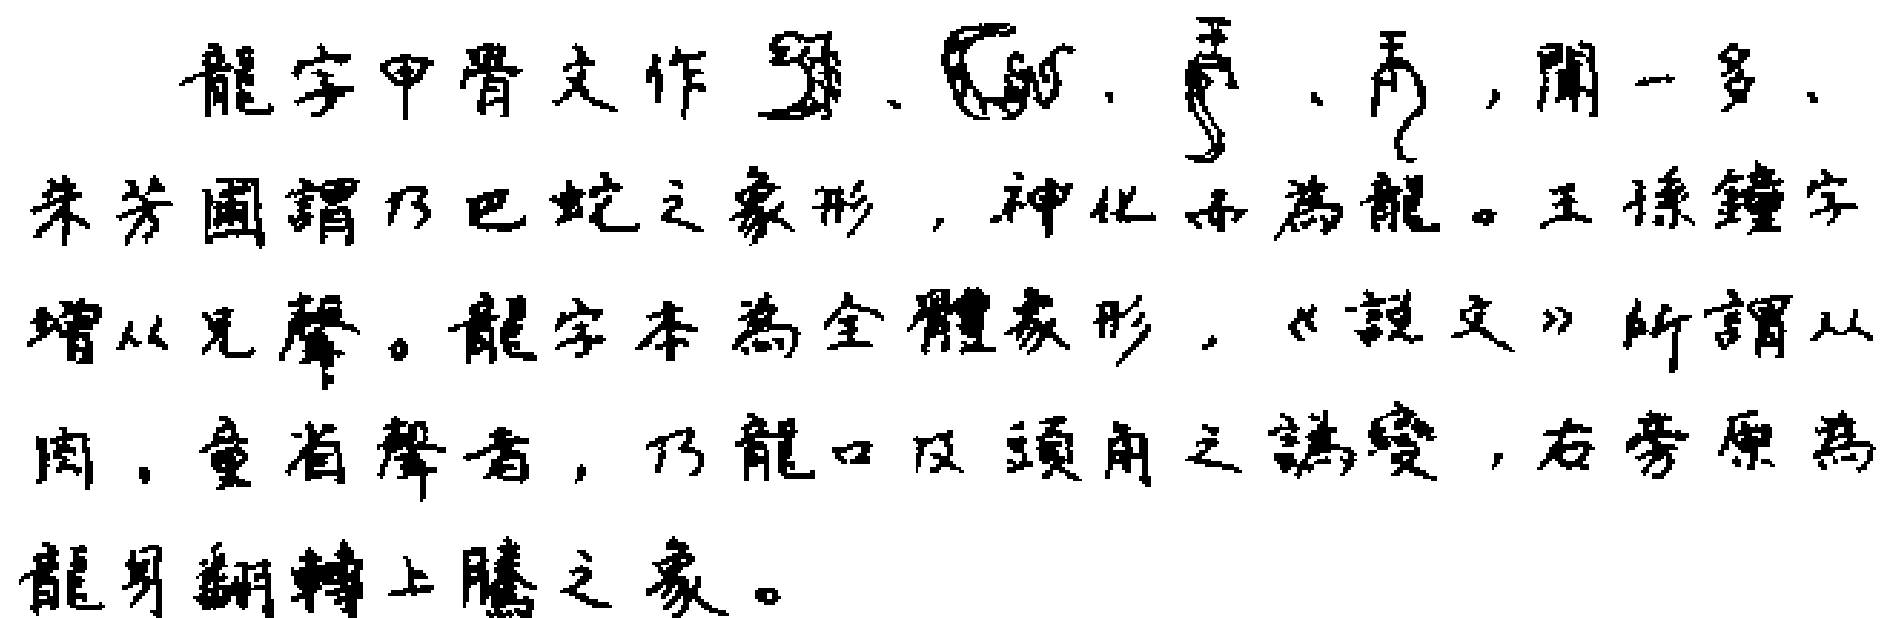 龍字甲骨文作、、、，聞一多、
朱芳圃謂乃巴蛇之象形，神化而為龍。王孫鐘字
增从兄聲。龍字本為全體象形，《說文》所謂从
肉，童省聲者，乃龍口及頭角之譌變，右旁原為
龍身翻轉上騰之象。